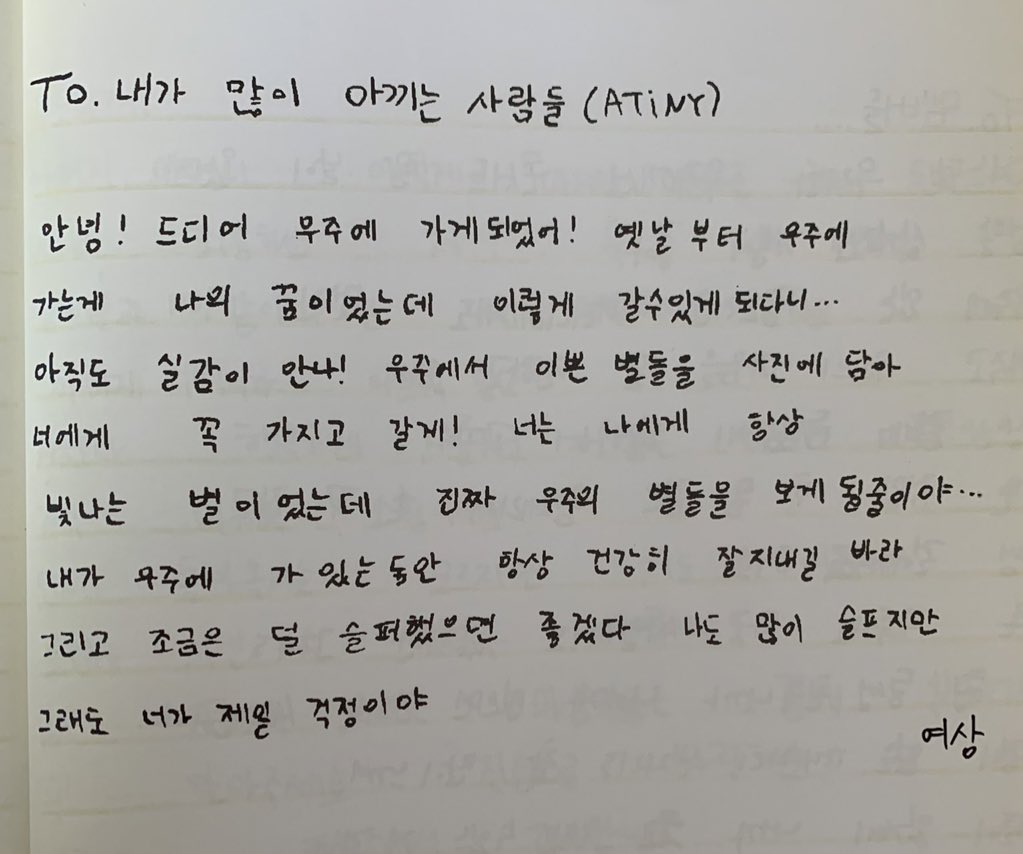 To. 내가 많이 아끼는 사람들 (ATiNY)
안녕! 드디어 우주에 가게되었어! 옛날부터 우주에
가는게 나의 꿈이었는데 이렇게 갈수있게 되다니...
아직도 실감이 안나! 우주에서 이쁜 별들을 사진에 담아
너에게 꼭 가지고 갈게! 너는 나에게 항상
빛나는 별이었는데 진짜 우주의 별들을 보게 될줄이야...
내가 우주에 가 있는 동안 항상 건강히 잘지내길 바라
그리고 조금은 덜 슬퍼했으면 좋겠다 나도 많이 슬프지만
그래도 너가 제일 걱정이야
여상